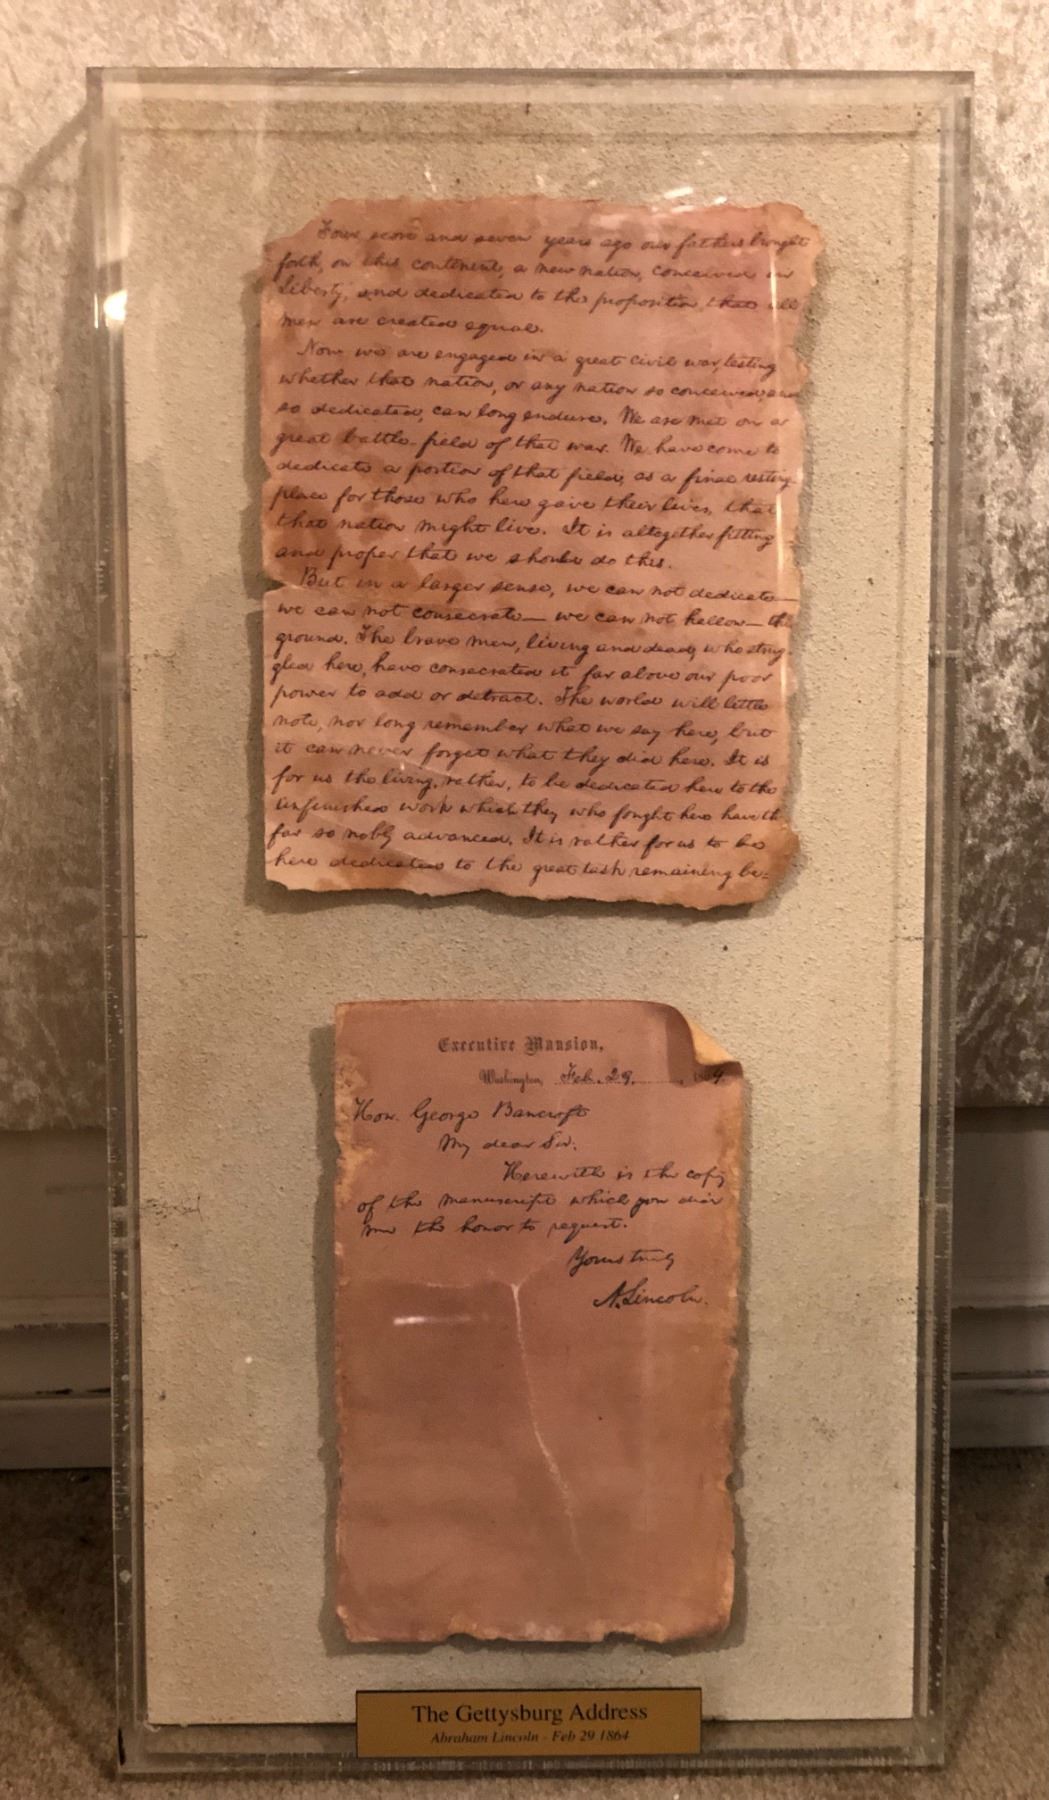 Four score and seven years ago our fathers brought
forth, on this continent, a new nation, conceived in
Liberty, and dedicated to the proposition that all
men are created equal.
Now we are engaged in a great civil war, testing
whether that nation, or any nation so conceived, and
so dedicated, can long endure. We are met on a
great battle-field of that war. We have come to
dedicate a portion of that field, as a final resting-
place for those who here gave their lives, that
that nation might live. It is altogether fitting
and proper that we should do this.
But in a larger sense, we can not dedicate—
we can not consecrate— we can not hallow— this
ground. The brave men, living and dead, who strug-
gled here, have consecrated it far above our poor
power to add or detract. The world will little
note, nor long remember what we say here, but
it can never forget what they did here. It is
for us the living, rather, to be dedicated here to the
unfinished work which they who fought here have th
far so nobly advanced. It is rather for us to be
here dedicated to the great task remaining be=
Executive Mansion,
Washington, Feb. 29. , 1864.
Hon. George Bancroft
My dear Sir:
Herewith is the copy
of the manuscript which you did
me the honor to request.
Yours truly
A. Lincoln.
The Gettysburg Address
Abraham Lincoln - Feb 29 1864